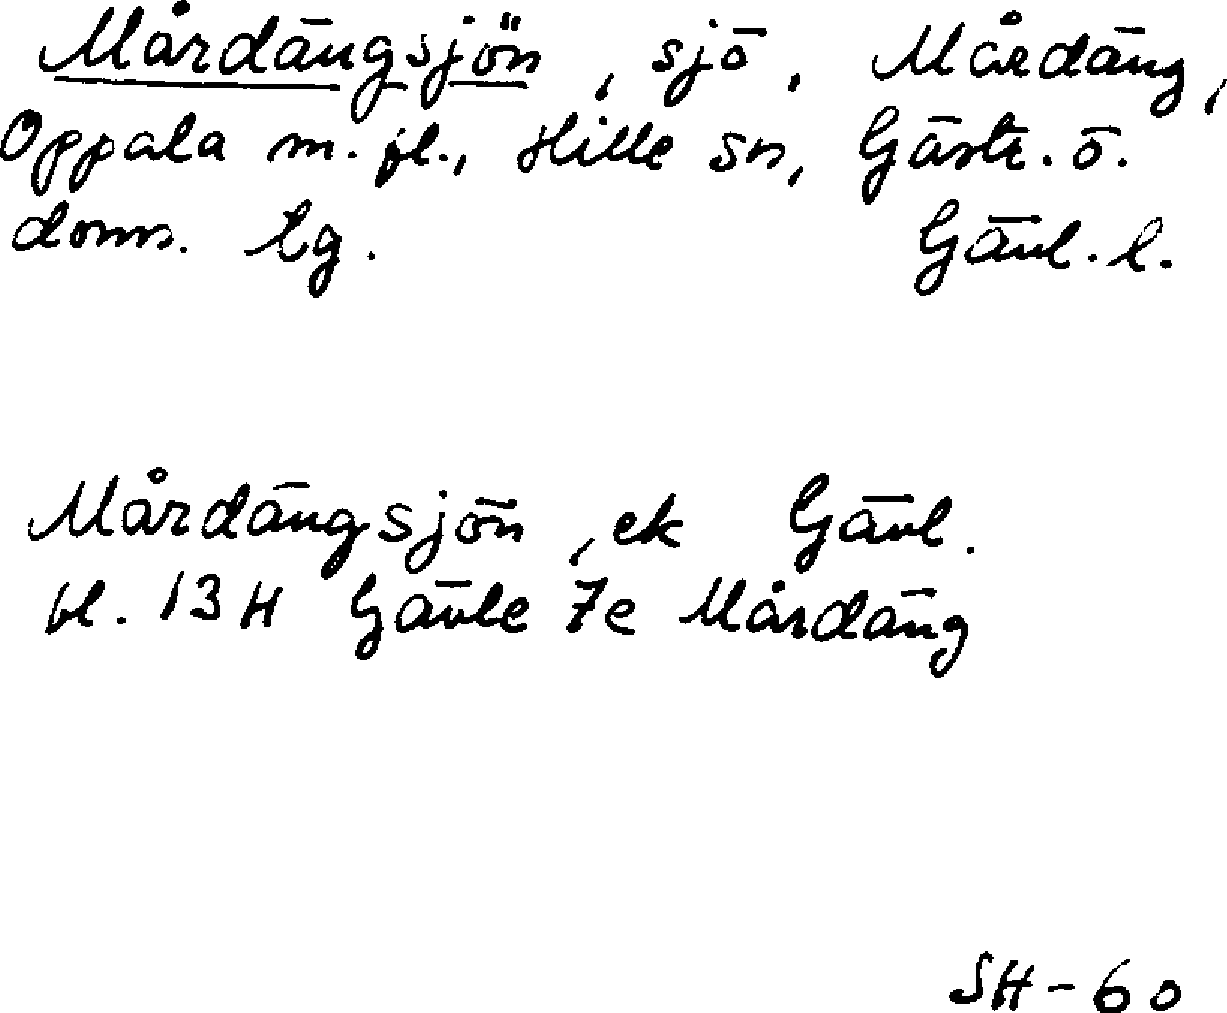 Mårdängsjön, sjö, Mårdäng,
Oppala m. fl., Hille sn, Gästr. ö.
doms. tg. Gävl. l.
Mårdängsjön, ek Gävl.
bl. 13H Gävle 7e Mårdäng
SH-60